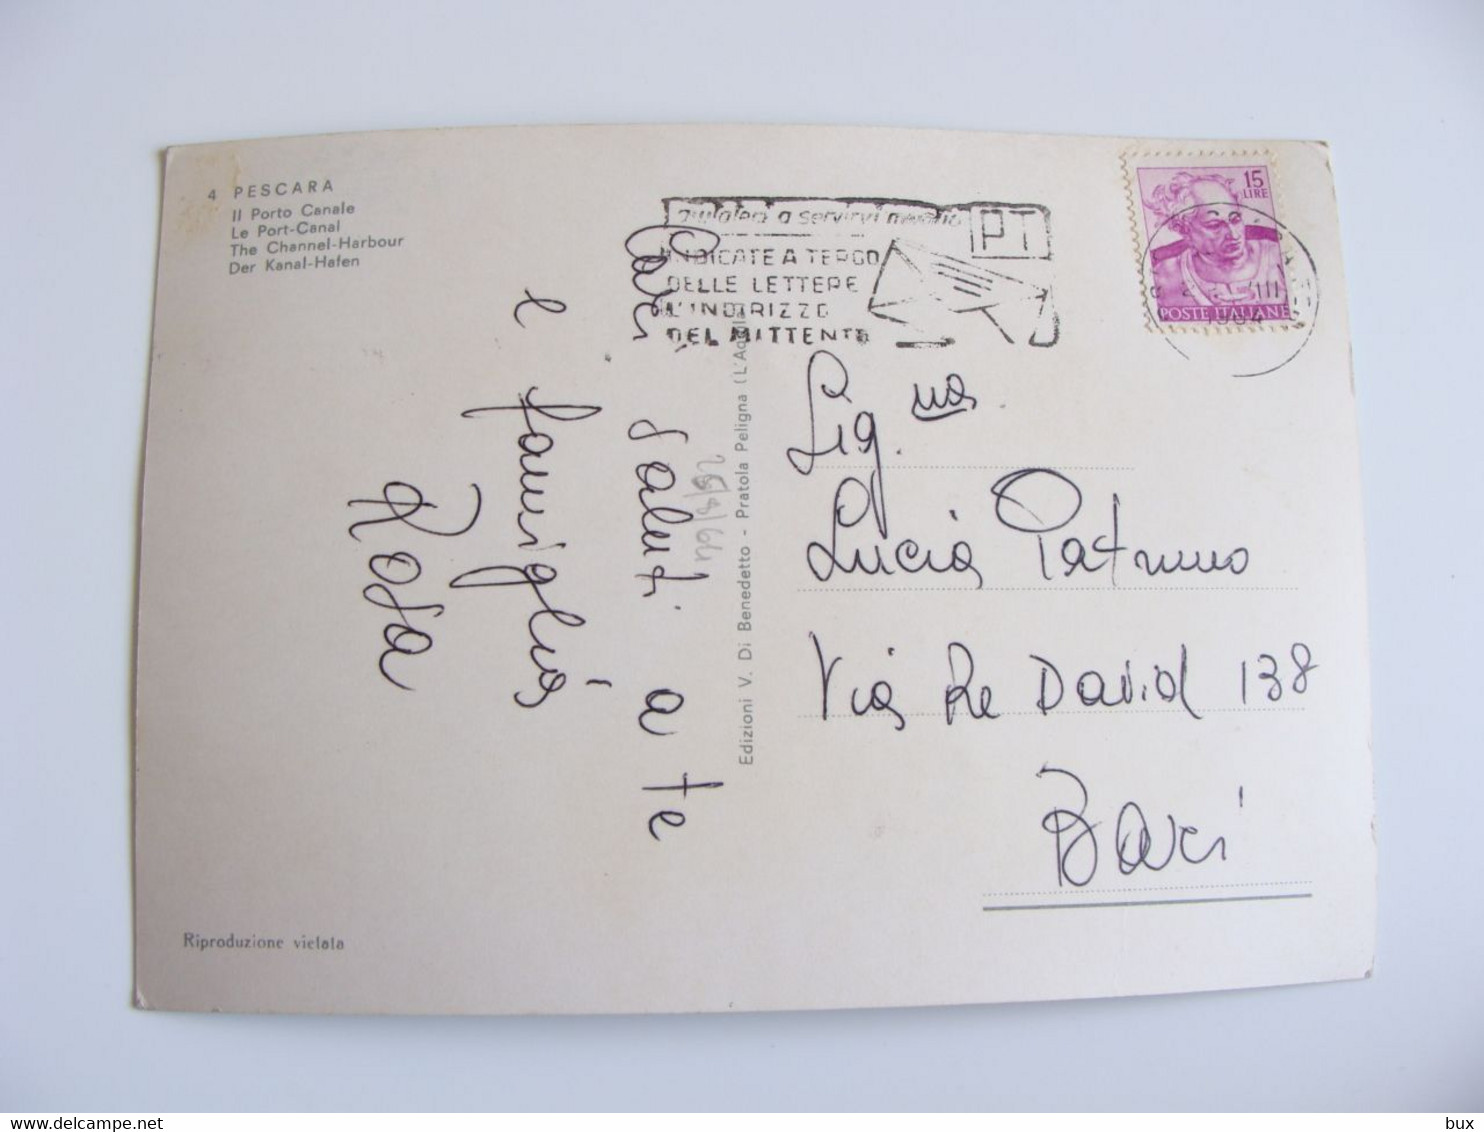 4 PESCARA
Il Porto Canale
Le Port-Canal
The Channel-Harbour
Der Kanal-Hafen
aiutateci a servirvi meglio
PT
INDICATE A TERGO
DELLE LETTERE
L'INDIRIZZO
DEL MITTENTE
15
LIRE
POSTE ITALIANE
1964
Cari saluti a te
e famiglia
Rosa
25/8/64
Edizioni V. Di Benedetto - Pratola Peligna (L'Aquila)
Sig.na
Lucia Patruno
Via Re David 138
Bari
Riproduzione vietata
bux